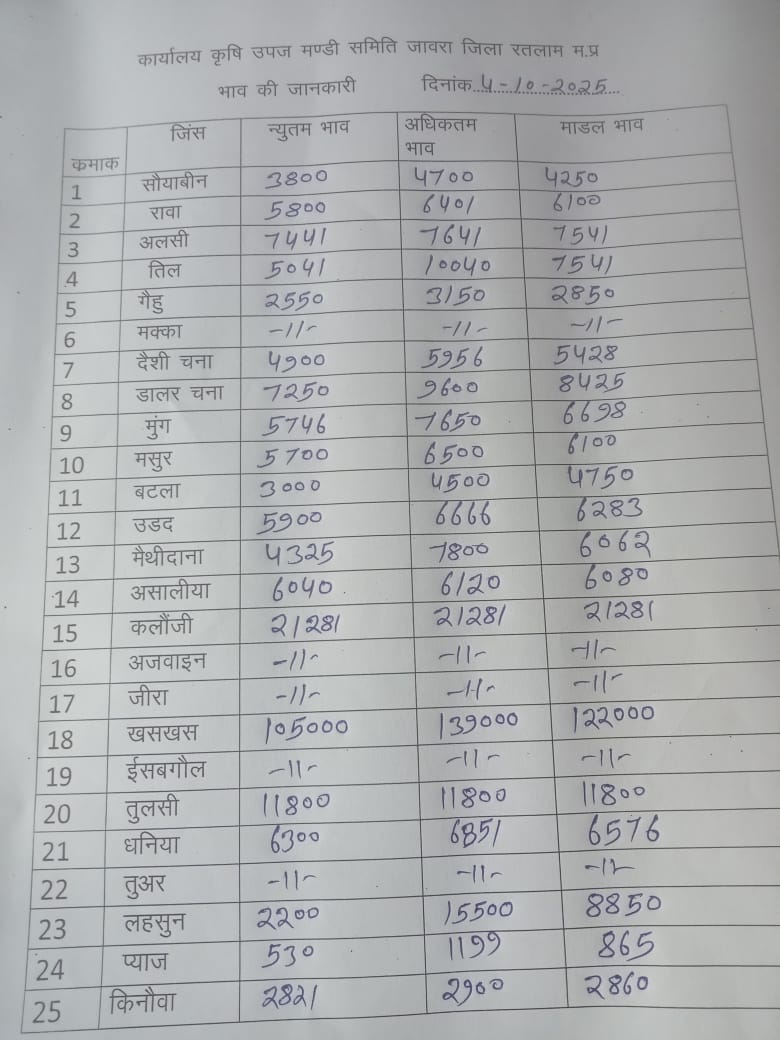 कार्यालय कृषि उपज मण्डी समिति जावरा जिला रतलाम म.प्र
भाव की जानकारी दिनांक 4-10-2025
कमाक जिंस न्युतम भाव अधिकतम भाव माडल भाव
1 सौयाबीन 3800 4700 4250
2 रावा 5800 6401 6100
3 अलसी 7441 7641 7541
4 तिल 5041 10040 7541
5 गैहु 2550 3150 2850
6 मक्का -11- -11- -11-
7 दैशी चना 4900 5956 5428
8 डालर चना 7250 9600 8425
9 मुंग 5746 7650 6698
10 मसुर 5700 6500 6100
11 बटला 3000 4500 4750
12 उडद 5900 6666 6283
13 मैथीदाना 4325 7800 6062
14 असालीया 6040 6120 6080
15 कलौंजी 21281 21281 21281
16 अजवाइन -11- -11- -11-
17 जीरा -11- -11- -11-
18 खसखस 105000 139000 122000
19 ईसबगौल -11- -11- -11-
20 तुलसी 11800 11800 11800
21 धनिया 6300 6851 6576
22 तुअर -11- -11- -11-
23 लहसुन 2200 15500 8850
24 प्याज 530 1199 865
25 किनौवा 2821 2900 2860